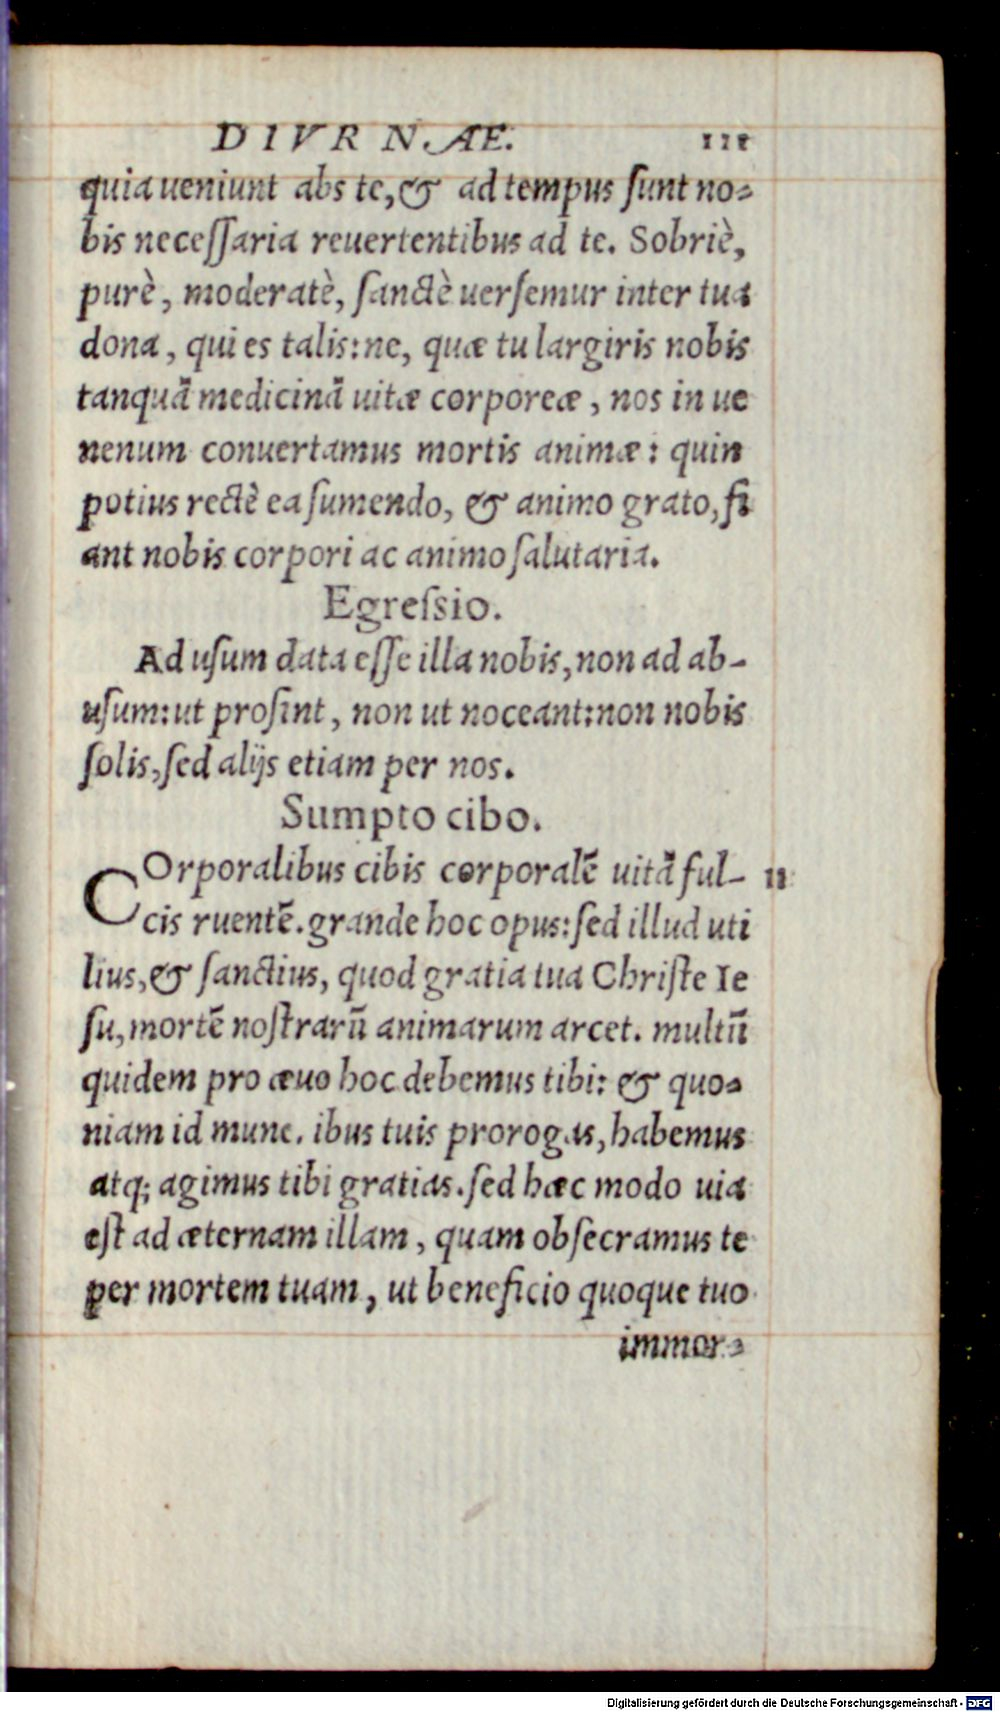 DIVRNÆ. 111
quia ueniunt abs te, & ad tempus ſunt no-
bis neceſſaria reuertentibus ad te. Sobriè,
purè, moderatè, ſanctè uerſemur inter tua
dona, qui es talis: ne, quæ tu largiris nobis
tanquã medicinã uitæ corporeæ, nos in ue
nenum conuertamus mortis animæ: quin
potius rectè ea ſumendo, & animo grato, fi
ant nobis corpori ac animo ſalutaria.
Egreſsio.
Ad uſum data eſſe illa nobis, non ad ab-
uſum: ut proſint, non ut noceant: non nobis
ſolis, ſed alijs etiam per nos.
Sumpto cibo.
COrporalibus cibis corporalẽ uitã ful- 11
cis ruentẽ. grande hoc opus: ſed illud uti
lius, & ſanctius, quod gratia tua Chriſte Ie
ſu, mortẽ noſtrarũ animarum arcet. multũ
quidem pro æuo hoc debemus tibi: & quo-
niam id mune. ibus tuis prorogas, habemus
atq; agimus tibi gratias. ſed hæc modo uia
eſt ad æternam illam, quam obſecramus te
per mortem tuam, ut beneficio quoque tuo
immor-
Digitalisierung gefördert durch die Deutsche Forschungsgemeinschaft - DFG